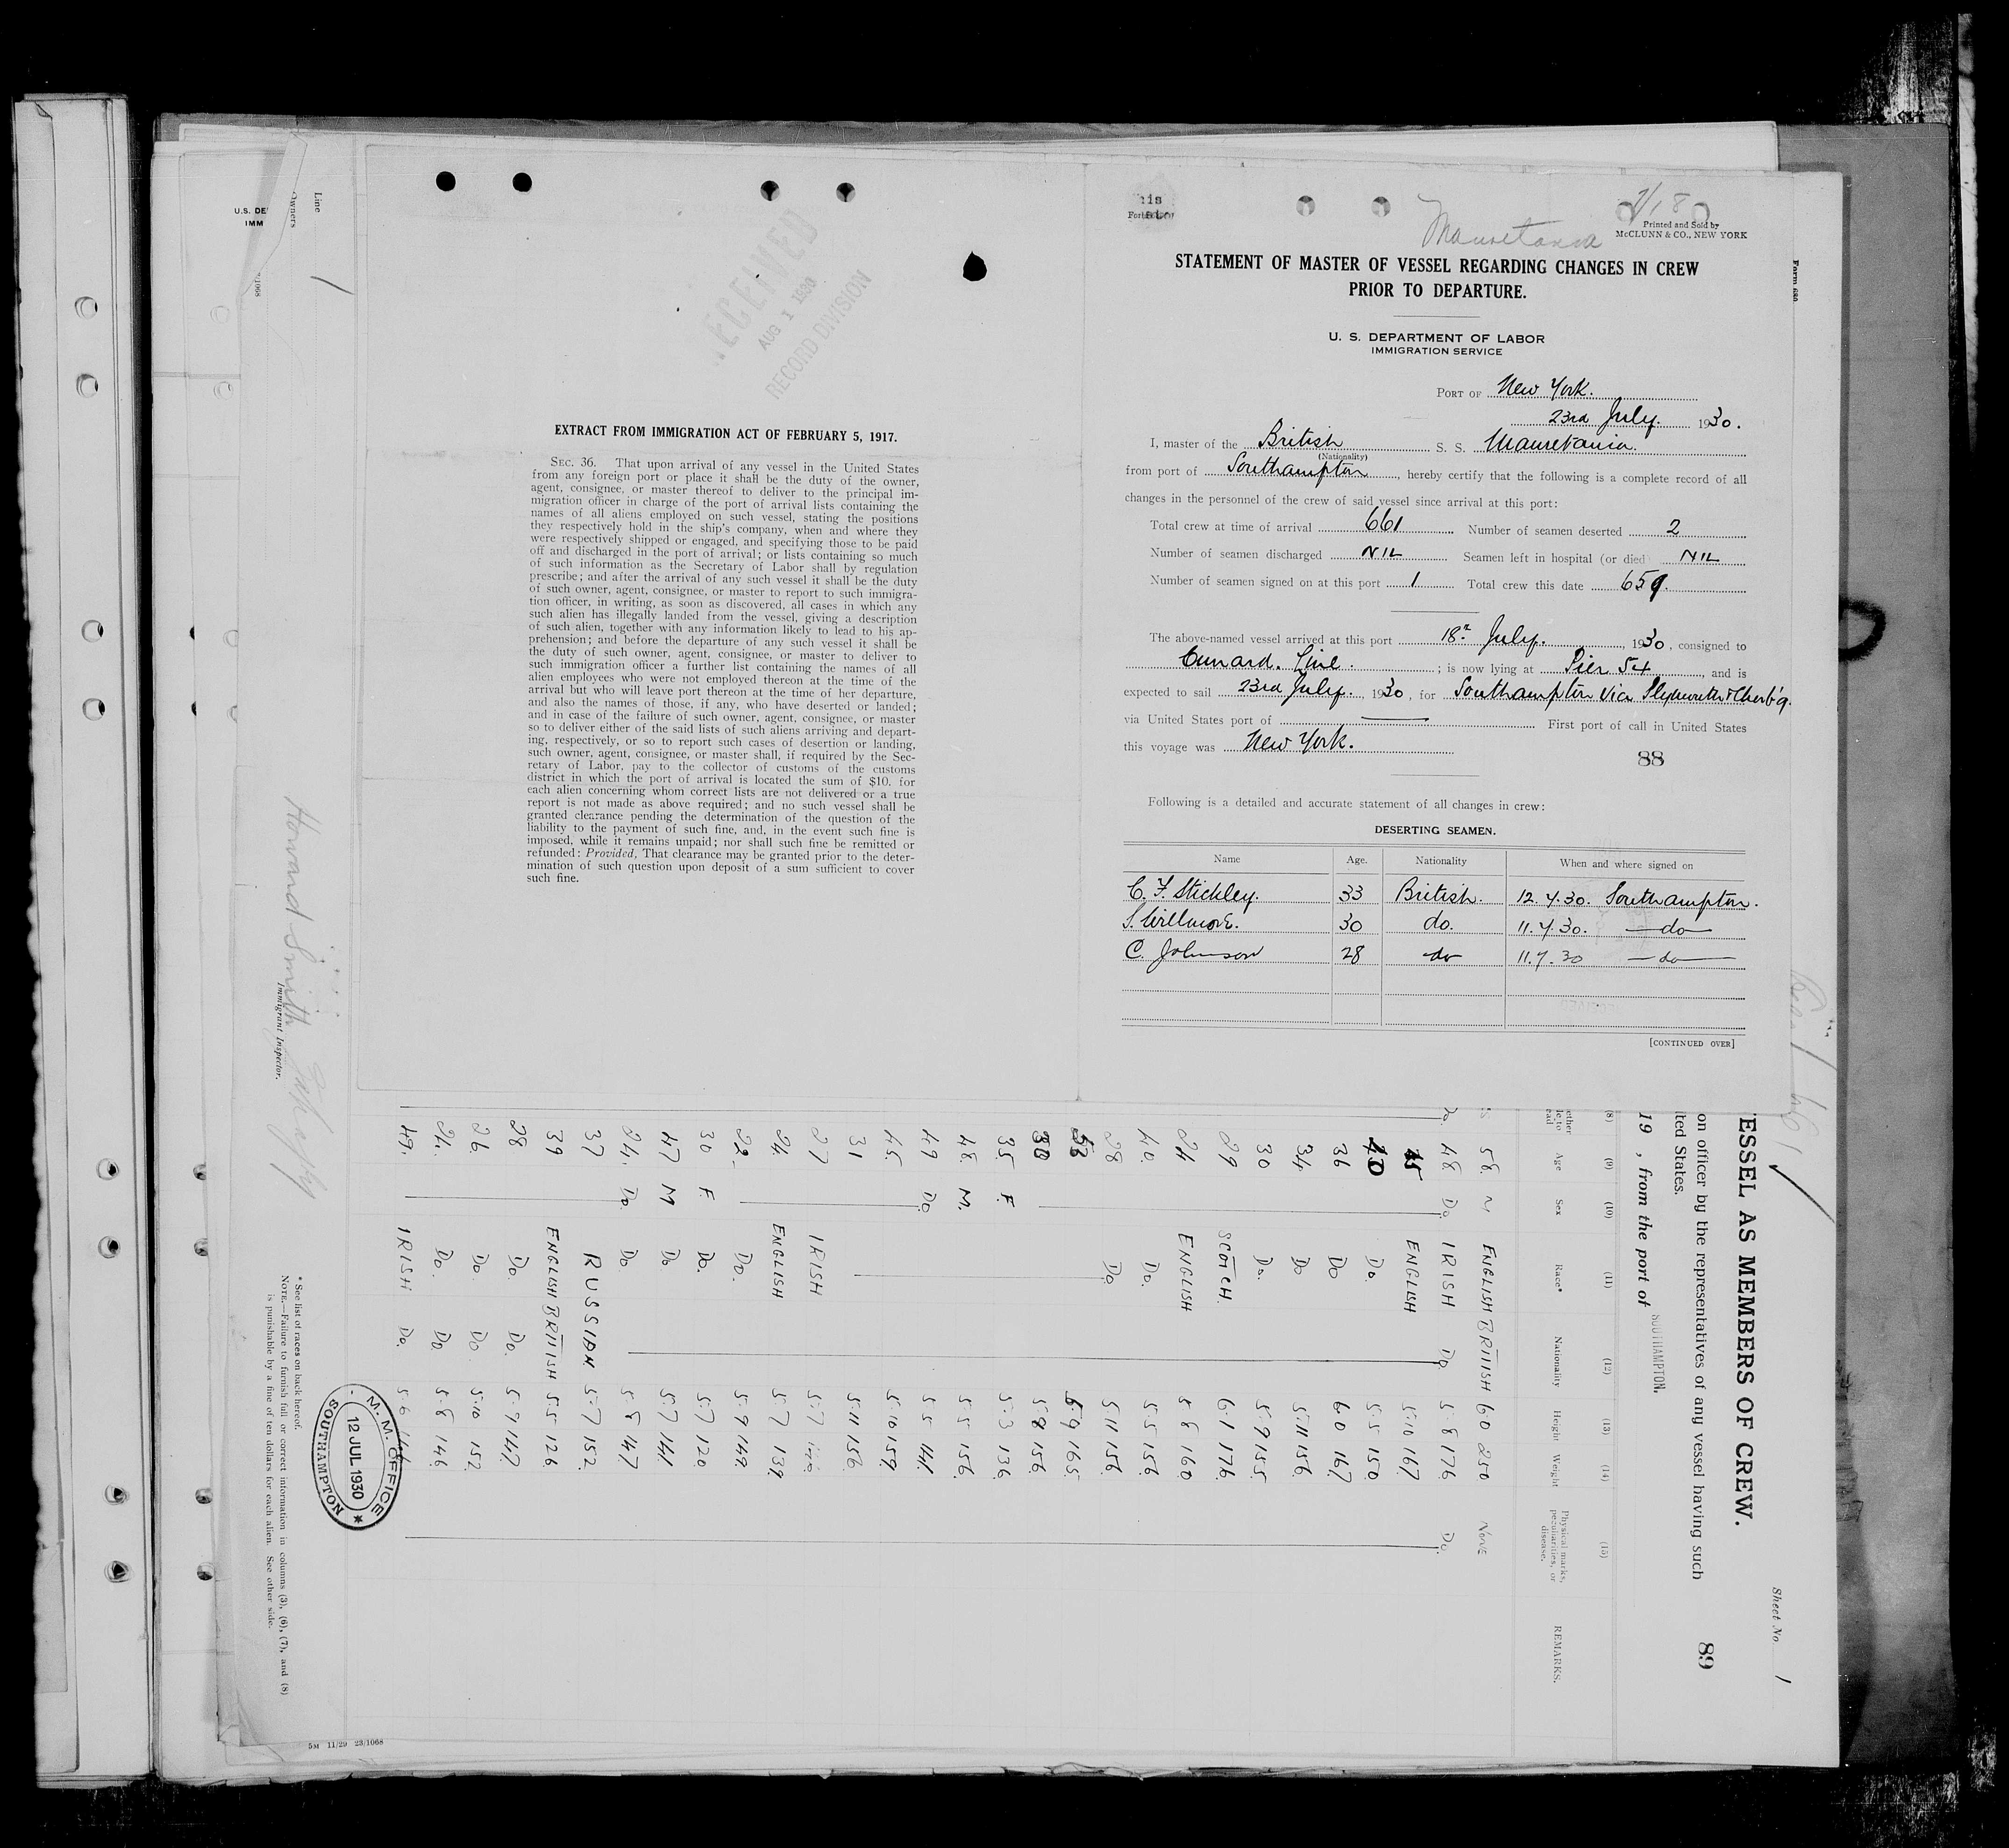 U. S. DE
IMM
Line
Owners
1
Howard Smith
Immigrant Inspector.
RECEIVED
AUG 1 1930
RECORD DIVISION
EXTRACT FROM IMMIGRATION ACT OF FEBRUARY 5, 1917.
SEC. 36. That upon arrival of any vessel in the United States
from any foreign port or place it shall be the duty of the owner,
agent, consignee, or master thereof to deliver to the principal im-
migration officer in charge of the port of arrival lists containing the
names of all aliens employed on such vessel, stating the positions
they respectively hold in the ship's company, when and where they
were respectively shipped or engaged, and specifying those to be paid
off and discharged in the port of arrival; or lists containing so much
of such information as the Secretary of Labor shall by regulation
prescribe; and after the arrival of any such vessel it shall be the duty
of such owner, agent, consignee, or master to report to such immigra-
tion officer, in writing, as soon as discovered, all cases in which any
such alien has illegally landed from the vessel, giving a description
of such alien, together with any information likely to lead to his ap-
prehension; and before the departure of any such vessel it shall be
the duty of such owner, agent, consignee, or master to deliver to
such immigration officer a further list containing the names of all
alien employees who were not employed thereon at the time of the
arrival but who will leave port thereon at the time of her departure,
and also the names of those, if any, who have deserted or landed;
and in case of the failure of such owner, agent, consignee, or master
so to deliver either of the said lists of such aliens arriving and depart-
ing, respectively, or so to report such cases of desertion or landing,
such owner, agent, consignee, or master shall, if required by the Sec-
retary of Labor, pay to the collector of customs of the customs
district in which the port of arrival is located the sum of $10, for
each alien concerning whom correct lists are not delivered or a true
report is not made as above required; and no such vessel shall be
granted clearance pending the determination of the question of the
liability to the payment of such fine, and, in the event such fine is
imposed, while it remains unpaid; nor shall such fine be remitted or
refunded: Provided, That clearance may be granted prior to the deter-
mination of such question upon deposit of a sum sufficient to cover
such fine.
Mauretania
Printed and Sold by
McCLUNN & CO., NEW YORK
STATEMENT OF MASTER OF VESSEL REGARDING CHANGES IN CREW
PRIOR TO DEPARTURE.
U. S. DEPARTMENT OF LABOR
IMMIGRATION SERVICE
PORT OF New York.
23rd July. 1930.
I, master of the British S. S. Mauretania.
(Nationality)
from port of Southampton, hereby certify that the following is a complete record of all
changes in the personnel of the crew of said vessel since arrival at this port:
Total crew at time of arrival 661 Number of seamen deserted 2
Number of seamen discharged NIL Seamen left in hospital (or died) NIL
Number of seamen signed on at this port 1 Total crew this date 659.
The above-named vessel arrived at this port 18th July. 1930, consigned to
Cunard. Line. ; is now lying at Pier 54, and is
expected to sail 23rd July. 1930, for Southampton via Plymouth & Cherb'g.
via United States port of — First port of call in United States
this voyage was New York.
88
Following is a detailed and accurate statement of all changes in crew:
DESERTING SEAMEN.
Name Age. Nationality When and where signed on
C. F. Stickley. 33 British. 12.7.30. Southampton.
S. Willmore. 30 do. 11.7.30. do
C. Johnson 28 do 11.7.30 do
[CONTINUED OVER]
Form 680
Sheet No. 1
89
ESSEL AS MEMBERS OF CREW.
on officer by the representatives of any vessel having such
ted States.
19 , from the port of SOUTHAMPTON.
(8) (9) (10) (11) (12) (13) (14) (15)
Age Sex Race* Nationality Height Weight Physical marks, peculiarities, or disease. REMARKS.
58. M ENGLISH BRITISH 6.0 250 NONE
48 Do. IRISH Do. 5.8 176 Do.
45 ENGLISH 5.10 167.
40 Do. 5.5 150.
36 Do 6.0 167.
34. Do 5.11 156
30 Do. 5.9 155.
29 SCOTCH. 6.1 176.
24 ENGLISH 5.8 160
40. Do. 5.5 156.
28 Do. 5.11 156.
5.9 165.
30 5.8 156.
35. F. 5.3 136.
48. M. 5.5 156.
49 Do. 5.5 141.
45. 5.10 159.
31 5.11 156.
27 IRISH 5.7
24. ENGLISH 5.7 139.
22. Do. 5.9 149.
30 F. Do. 5.7 120
47 M Do. 5.7 141.
24. Do. Do. 5.8 147
37 RUSSIAN 5.7 152.
39 ENGLISH BRITISH 5.5 126
28 Do. Do. 5.9 147.
26. Do. Do. 5.10 152.
24. Do. Do 5.8 146
49. IRISH Do. 5.6
M. M. OFFICE
12 JUL 1930
SOUTHAMPTON
* See list of races on back hereof.
NOTE.—Failure to furnish full or correct information in columns (3), (6), (7), and (8)
is punishable by a fine of ten dollars for each alien. See other side.
5M 11/29 23/1068